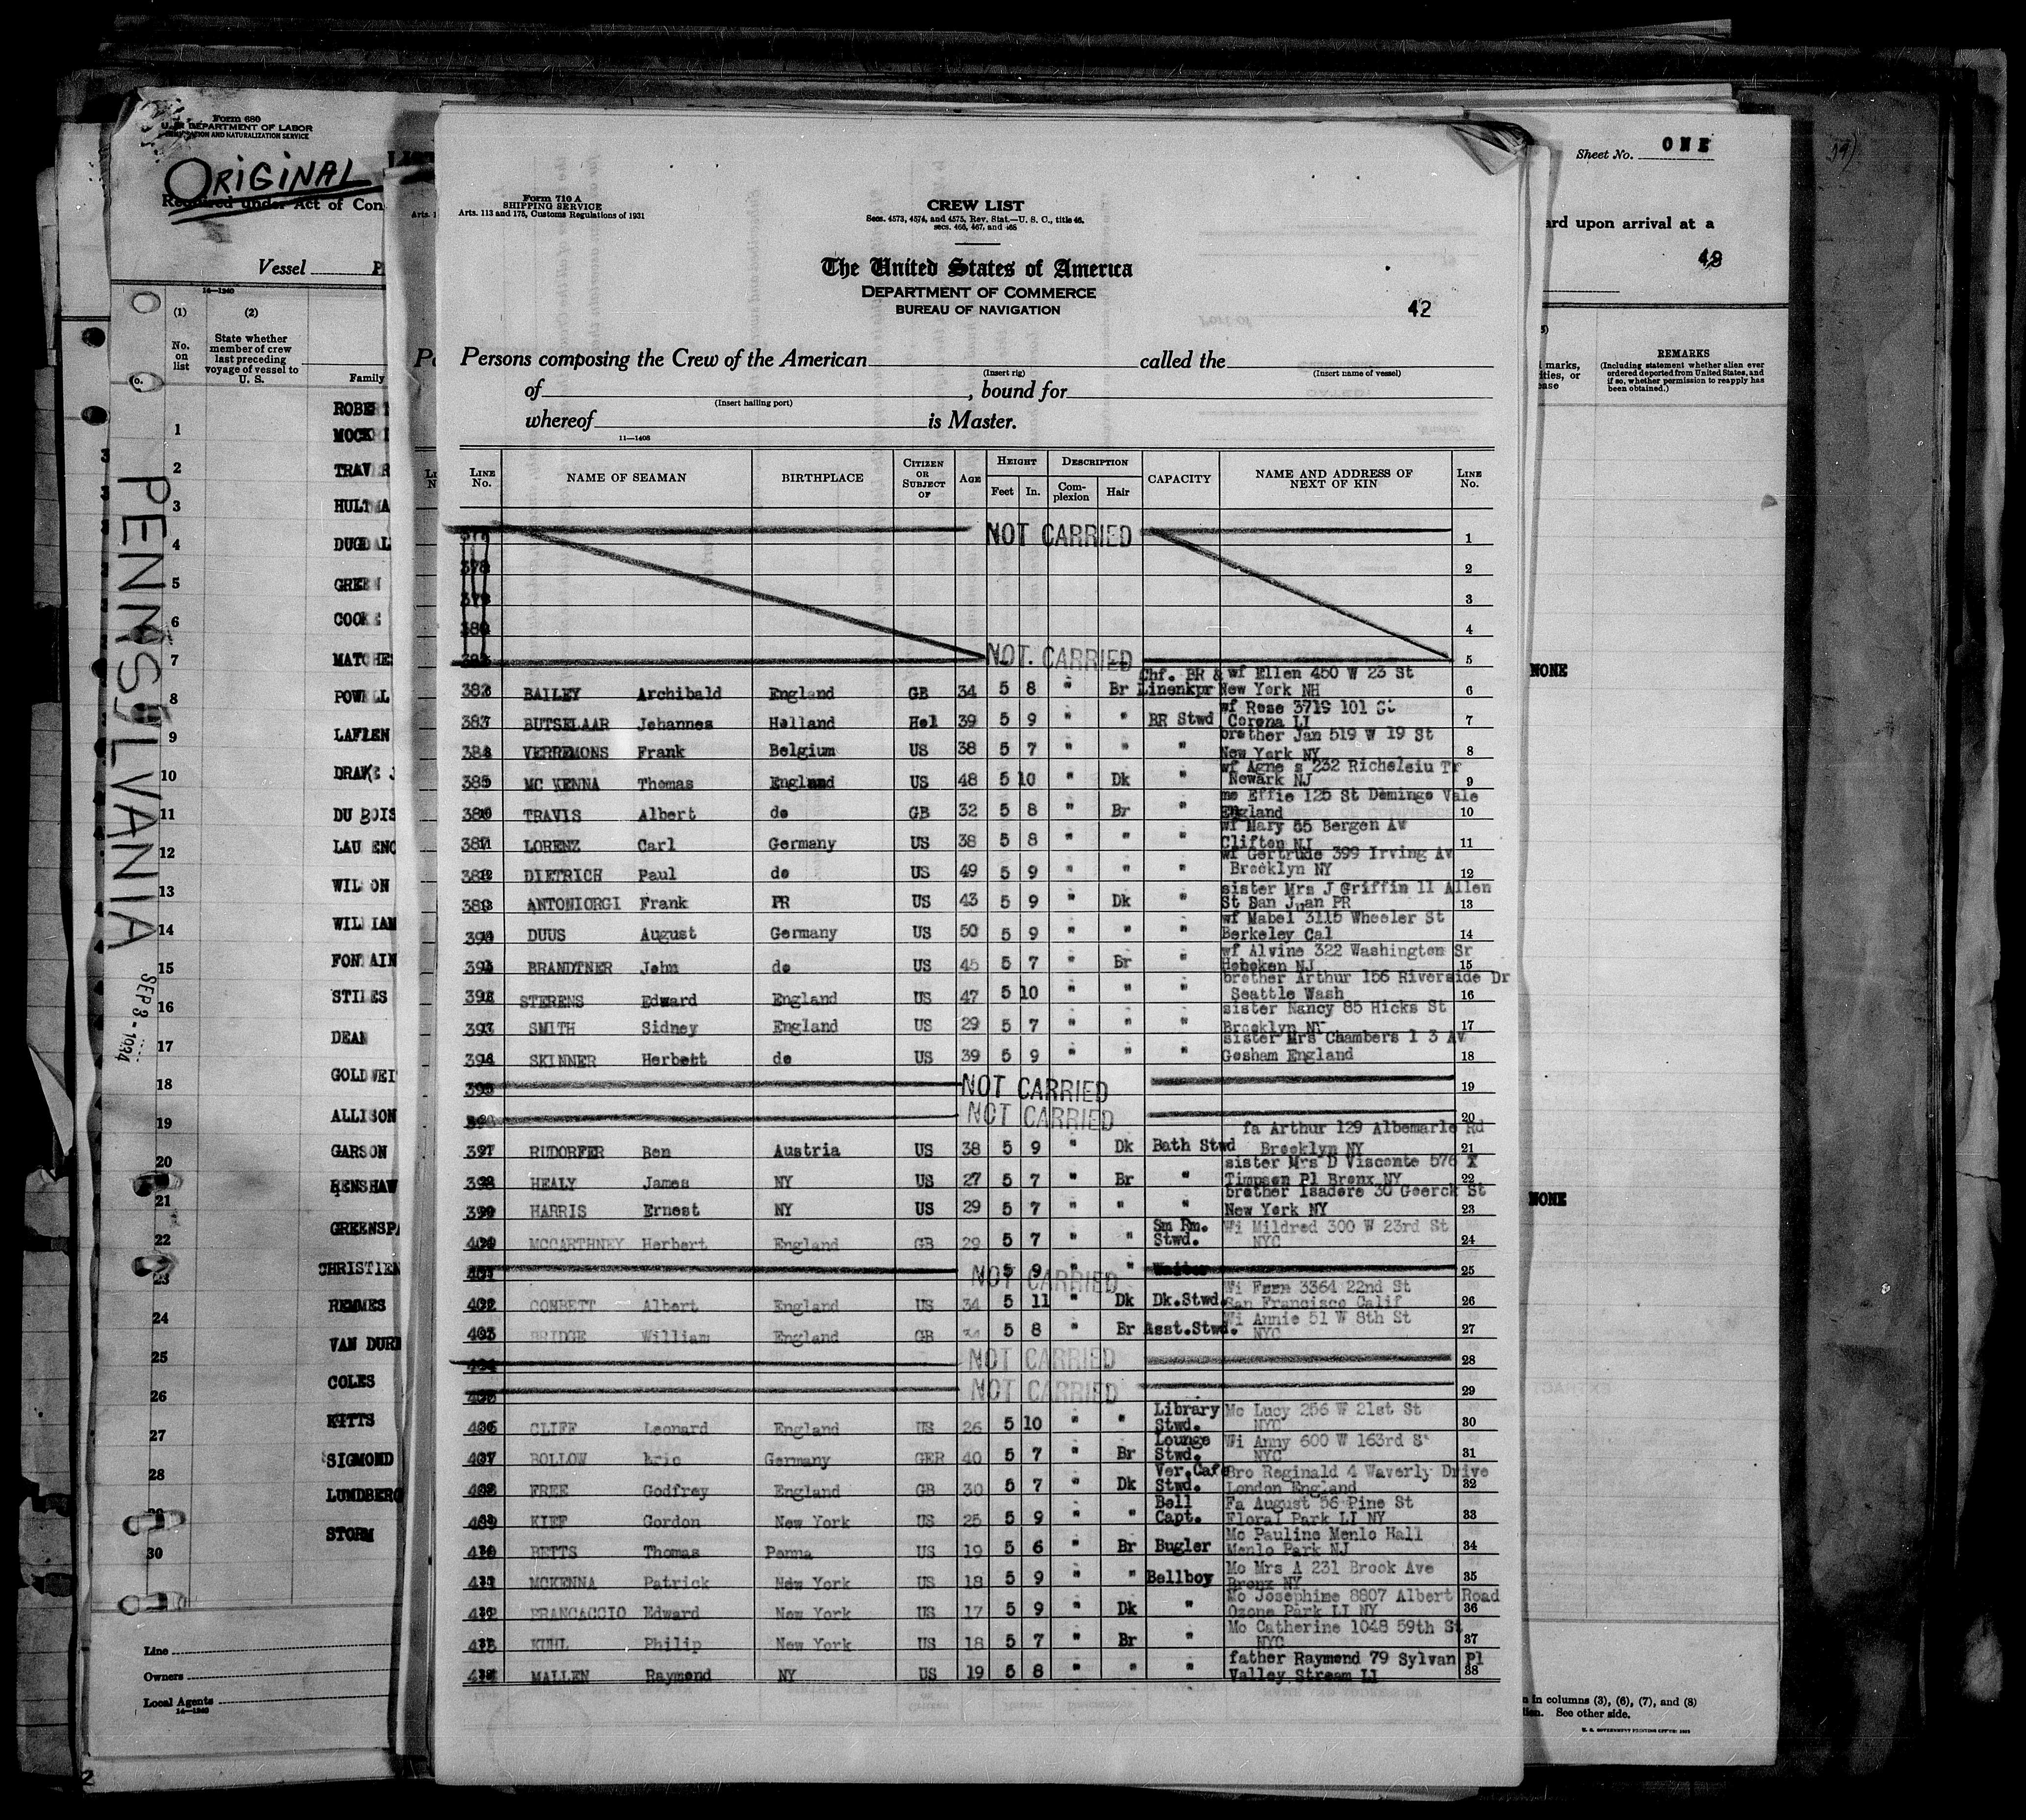 Form 680
U. S. DEPARTMENT OF LABOR
IMMIGRATION AND NATURALIZATION SERVICE
ORIGINAL
Required under Act of Con
Vessel
14—1240
(1)
(2)
No. on list
State whether member of crew last preceding voyage of vessel to U. S.
Family
1 ROBE
MOCK
2 TRAV R
3 HULT A
4 DUGDAL
5 GREEN
6 COOKE
7 MATCHE
8 POWELL
9 LAFLEN
10 DRAKE J
11 DU BOIS
12 LAU ENC
13 WILSON
14 WILLIAM
15 FONTAIN
16 STILES
17 DEAN
18 GOLDWEI
19 ALLISON
20 GARSON
21 RENSHAW
22 GREENSPA
23 CHRISTIEN
24 REMMES
25 VAN DURN
26 COLES
27 KITTS
28 SIGMOND
29 LUNDBERG
30 STORM
PENNSYLVANIA
SEP 3 - 1934
Line
Owners
Local Agents
14—1240
Form 710 A
SHIPPING SERVICE
Arts. 113 and 175, Customs Regulations of 1931
CREW LIST
Secs. 4573, 4574, and 4575, Rev. Stat.—U. S. C., title 46,
secs. 466, 467, and 468
The United States of America
DEPARTMENT OF COMMERCE
BUREAU OF NAVIGATION
42
Persons composing the Crew of the American called the
(Insert rig) (Insert name of vessel)
of , bound for
(Insert hailing port)
whereof is Master.
11—1408
LINE No. NAME OF SEAMAN BIRTHPLACE CITIZEN OR SUBJECT OF AGE HEIGHT Feet In. DESCRIPTION Complexion Hair CAPACITY NAME AND ADDRESS OF NEXT OF KIN LINE No.
377 NOT CARRIED 1
378 2
379 3
380 4
NOT CARRIED 5
382 BAILEY Archibald England GB 34 5 8 " Br Chf. BR & Linenkpr wf Ellen 450 W 23 St New York NH 6
383 BUTSELAAR Johannes Holland Hol 39 5 9 " " BR Stwd wf Rose 3719 101 St Corona LI 7
384 VERREMONS Frank Belgium US 38 5 7 " " " brother Jan 519 W 19 St New York NY 8
385 MC KENNA Thomas England US 48 5 10 " Dk " wf Agne s 232 Richeleiu Tr Newark NJ 9
386 TRAVIS Albert do GB 32 5 8 " Br " mo Effie 125 St Domingo Vale England 10
387 LORENZ Carl Germany US 38 5 8 " " " wf Mary 55 Bergen Av Clifton NJ 11
388 DIETRICH Paul do US 49 5 9 " " " wf Gertrude 399 Irving Av Brooklyn NY 12
389 ANTONIORGI Frank PR US 43 5 9 " Dk " sister Mrs J Griffin 11 Allen St San Juan PR 13
390 DUUS August Germany US 50 5 9 " " " wf Mabel 3115 Wheeler St Berkeley Cal 14
391 BRANDTNER John do US 45 5 7 " Br " wf Alvine 322 Washington Sr Hoboken NJ 15
392 STERENS Edward England US 47 5 10 " " " brother Arthur 156 Riverside Dr Seattle Wash 16
393 SMITH Sidney England US 29 5 7 " " " sister Nancy 85 Hicks St Brooklyn NY 17
394 SKINNER Herbett do US 39 5 9 " " " sister Mrs Chambers 1 3 AV Gosham England 18
395 NOT CARRIED 19
396 NOT CARRIED 20
397 RUDORFER Ben Austria US 38 5 9 " Dk Bath Stwd fa Arthur 129 Albemarle Rd Brooklyn NY 21
398 HEALY James NY US 27 5 7 " Br " sister Mrs D Visconte 576 X Timpson Pl Bronx NY 22
399 HARRIS Ernest NY US 29 5 7 " " " brother Isadore 30 Goerck St New York NY 23
400 MCCARTHNEY Herbert England GB 29 5 7 " " Sm Rm. Stwd. Wi Mildred 300 W 23rd St NYC 24
401 NOT CARRIED 5 9 " " Waiter 25
402 CONBETT Albert England US 34 5 11 " Dk Dk.Stwd. Wi Fern 3364 22nd St San Francisco Calif 26
403 BRIDGE William England GB 34 5 8 " Br Asst.Stwd. Wi Annie 51 W 8th St NYC 27
404 NOT CARRIED 28
405 NOT CARRIED 29
406 CLIFF Leonard England US 26 5 10 " " Library Stwd. Mo Lucy 256 W 21st St NYC 30
407 BOLLOW Eric Germany GER 40 5 7 " Br Lounge Stwd. Wi Anny 600 W 163rd St NYC 31
408 FREE Godfrey England GB 30 5 7 " Dk Ver.Cafe Stwd. Bro Reginald 4 Waverly Drive London England 32
409 KIEF Gordon New York US 25 5 9 " " Bell Capt. Fa August 56 Pine St Floral Park LI NY 33
410 BETTS Thomas Penna US 19 5 6 " Br Bugler Mo Pauline Menlo Hall Menlo Park NJ 34
411 MCKENNA Patrick New York US 18 5 9 " " Bellboy Mo Mrs A 231 Brook Ave Bronx NY 35
412 BRANCACCIO Edward New York US 17 5 9 " Dk " Mo Josephine 8807 Albert Road Ozone Park LI NY 36
413 KUHL Philip New York US 18 5 7 " Br " Mo Catherine 1048 59th St NYC 37
414 MALLEN Raymond NY US 19 5 8 " " " father Raymond 79 Sylvan Pl Valley Stream LI 38
Sheet No. ONE
ard upon arrival at a
REMARKS
(Including statement whether alien ever ordered deported from United States, and if so, whether permission to reapply has been obtained.)
NONE
NONE
n in columns (3), (6), (7), and (8)
See other side.